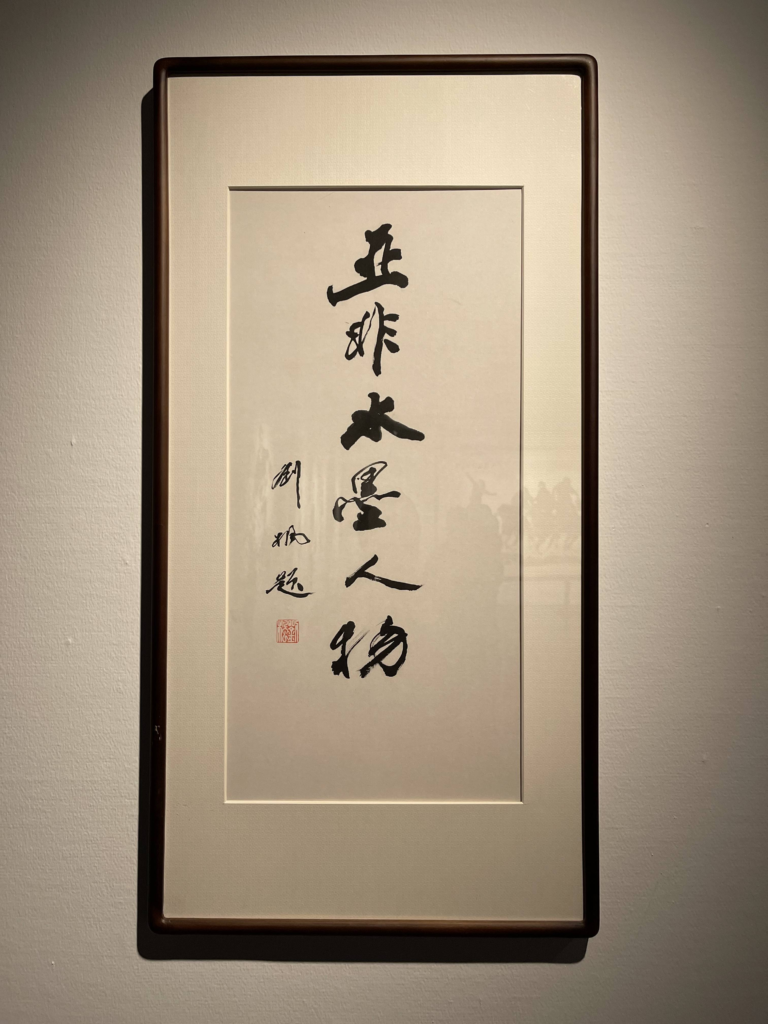 亚非水墨人物
刘枫题